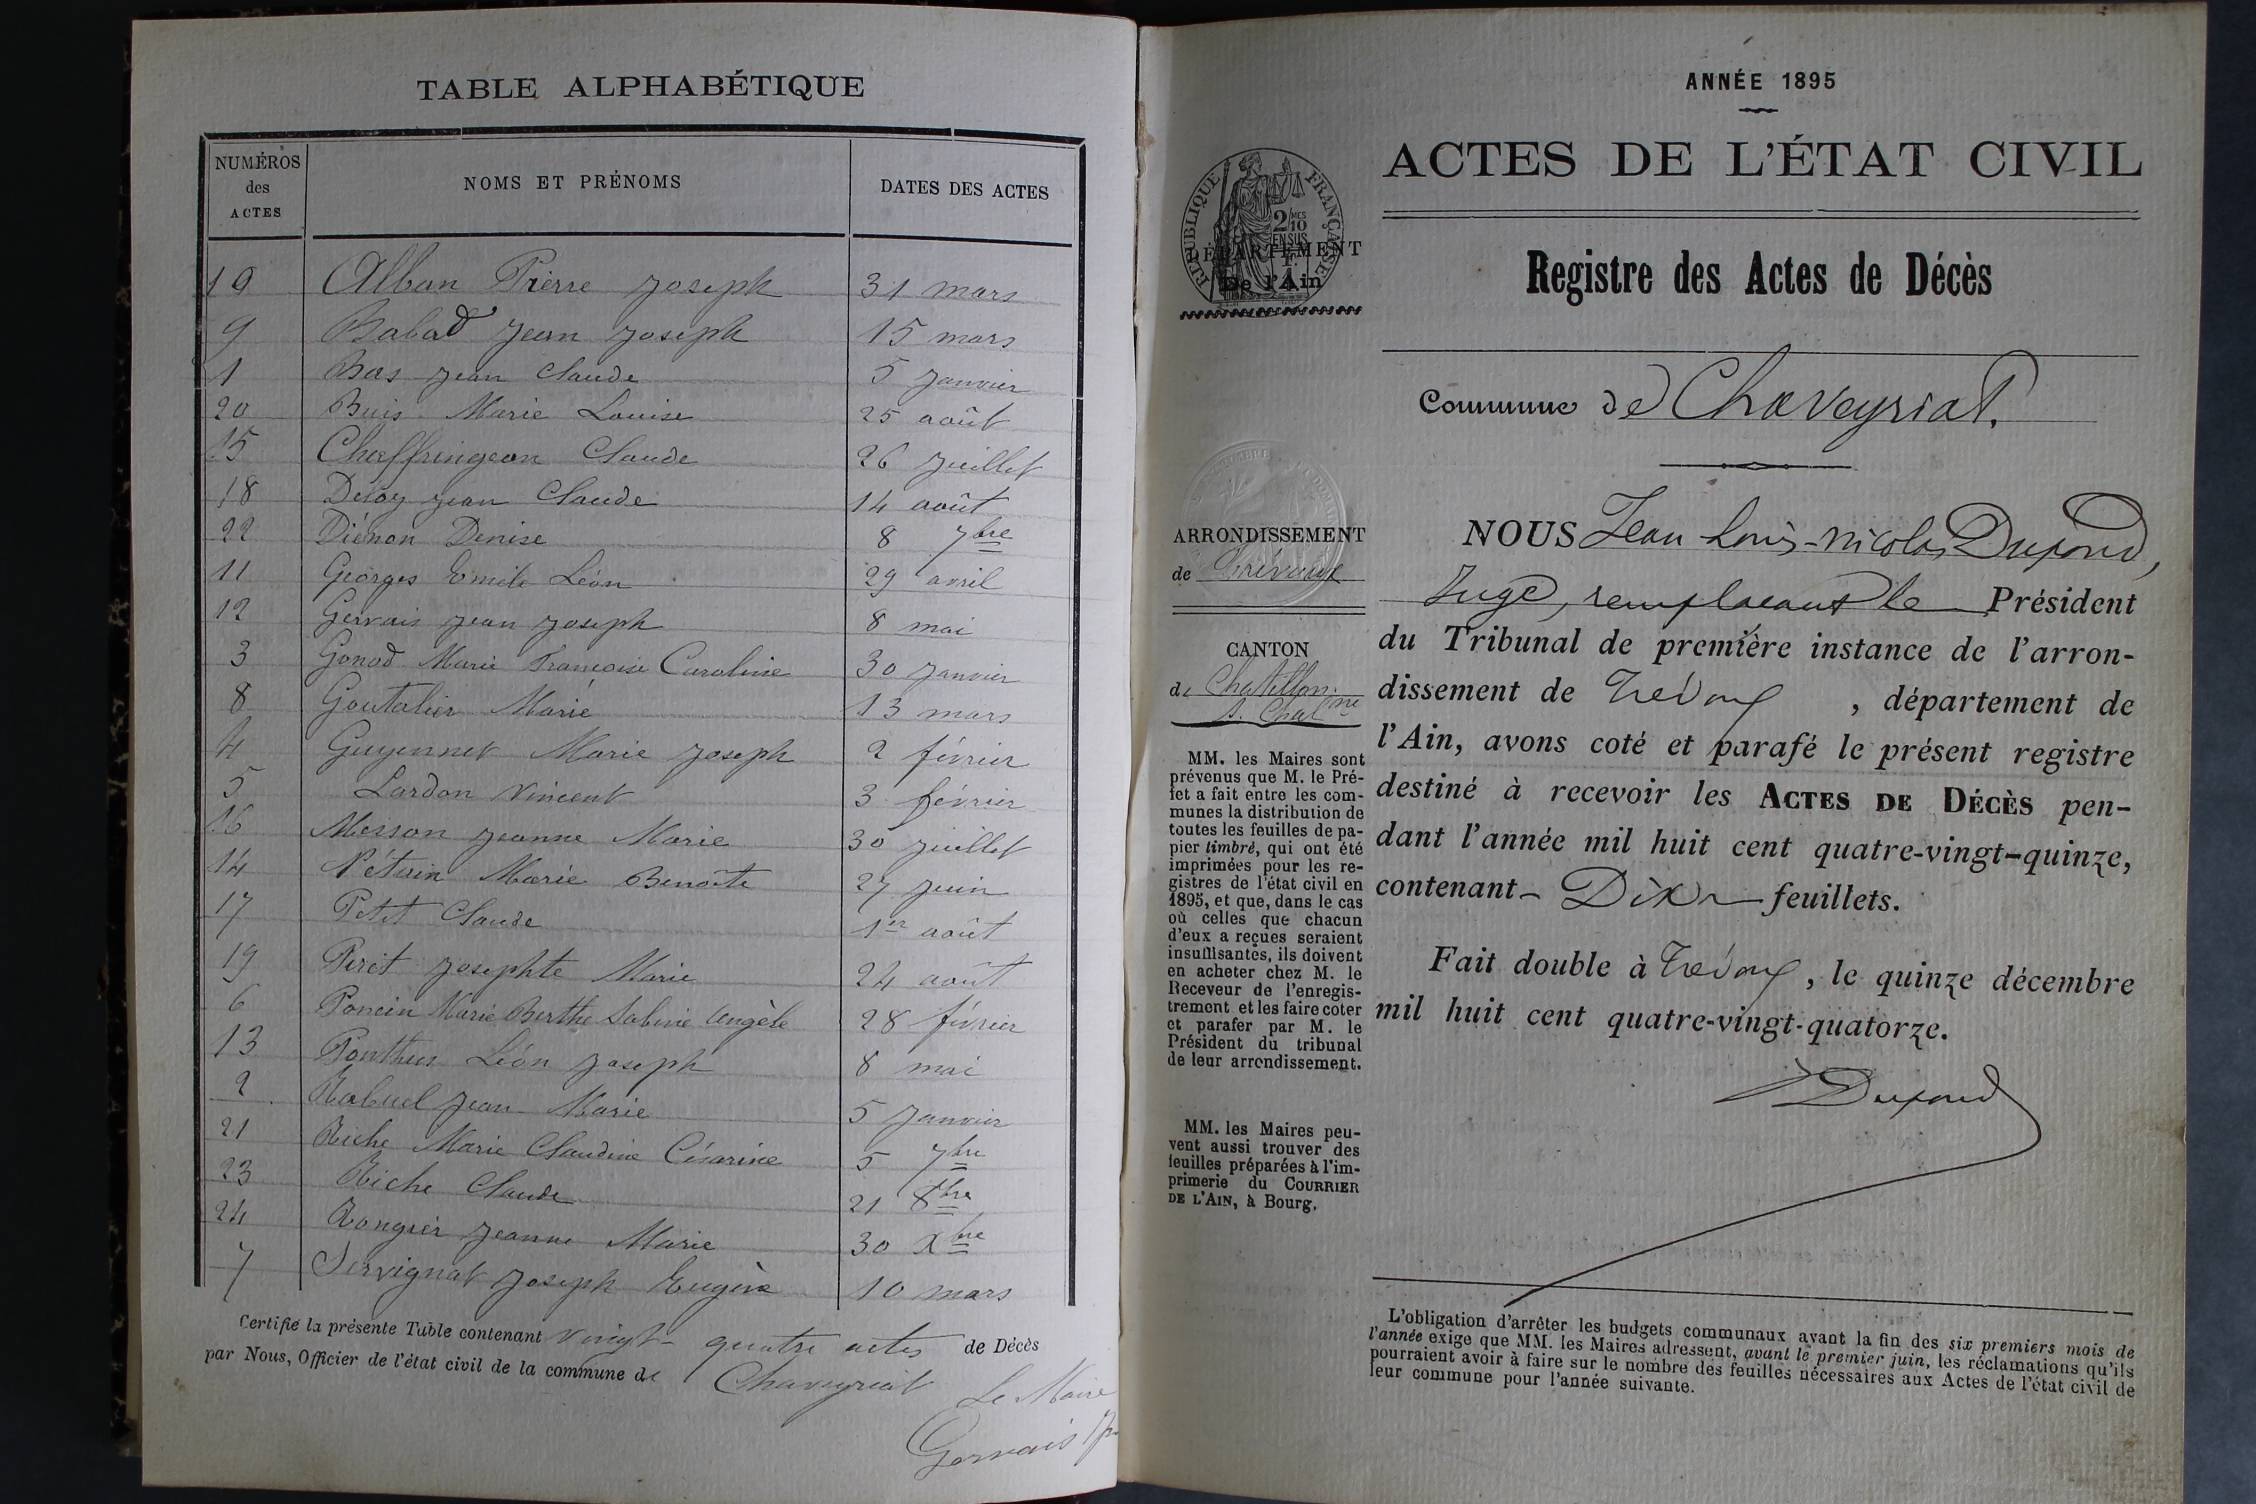 TABLE ALPHABÉTIQUE
NUMÉROS des ACTES NOMS ET PRÉNOMS DATES DES ACTES
10 Alban Pierre Joseph 31 mars
9 Babad Jean Joseph 15 mars
1 Bas Jean Claude 5 Janvier
20 Buis Marie Louise 25 août
15 Chaffringeon Claude 26 Juillet
18 Jean Claude 14 août
22 Diénon Denise 8 7bre
11 Georges Emile Léon 29 avril
12 Gervais Jean Joseph 8 mai
3 Gonod Marie Françoise Caroline 30 Janvier
8 Goutalier Marie 13 mars
4 Guyennet Marie Joseph 2 février
5 Lardon Vincent 3 février
16 Messon Jeanne Marie 30 Juillet
14 Pétuin Marie Benoite 27 Juin
17 Petit Claude 1er août
19 Peret Josephte Marie 24 août
6 Poncin Marie Berthe Sabine Angèle 28 février
13 Ponthus Léon Joseph 8 mai
2 Rabuel Jean Marie 5 Janvier
21 Riche Marie Claudine Césarine 5 7bre
23 Riche Claude 21 8bre
24 Rongier Jeanne Marie 30 Xbre
7 Servignat Joseph Eugène 10 mars
Certifié la présente Table contenant vingt-quatre actes de Décès
par Nous, Officier de l'état civil de la commune de Chaveyriat
Le Maire
Gervais
ANNÉE 1895
ACTES DE L'ÉTAT CIVIL
RÉPUBLIQUE FRANÇAISE
2/10 MES
EN SUS
DÉPARTEMENT
De l'Ain
Registre des Actes de Décès
Commune de Chaveyriat.
ARRONDISSEMENT
de Trévoux
CANTON
de Chatillon
s. Chal.ne
MM. les Maires sont
prévenus que M. le Pré-
fet a fait entre les com-
munes la distribution de
toutes les feuilles de pa-
pier timbré, qui ont été
imprimées pour les re-
gistres de l'état civil en
1895, et que, dans le cas
où celles que chacun
d'eux a reçues seraient
insuffisantes, ils doivent
en acheter chez M. le
Receveur de l'enregis-
trement et les faire coter
et parafer par M. le
Président du tribunal
de leur arrondissement.
MM. les Maires peu-
vent aussi trouver des
feuilles préparées à l'im-
primerie du COURRIER
DE L'AIN, à Bourg.
NOUS Jean Louis-Nicolas Dupond,
Juge, remplacant le Président
du Tribunal de première instance de l'arron-
dissement de Trévoux, département de
l'Ain, avons coté et parafé le présent registre
destiné à recevoir les ACTES DE DÉCÈS pen-
dant l'année mil huit cent quatre-vingt-quinze,
contenant Dix feuillets.
Fait double à Trévoux, le quinze décembre
mil huit cent quatre-vingt-quatorze.
Dupond
L'obligation d'arrêter les budgets communaux avant la fin des six premiers mois de
l'année exige que MM. les Maires adressent, avant le premier juin, les réclamations qu'ils
pourraient avoir à faire sur le nombre des feuilles nécessaires aux Actes de l'état civil de
leur commune pour l'année suivante.